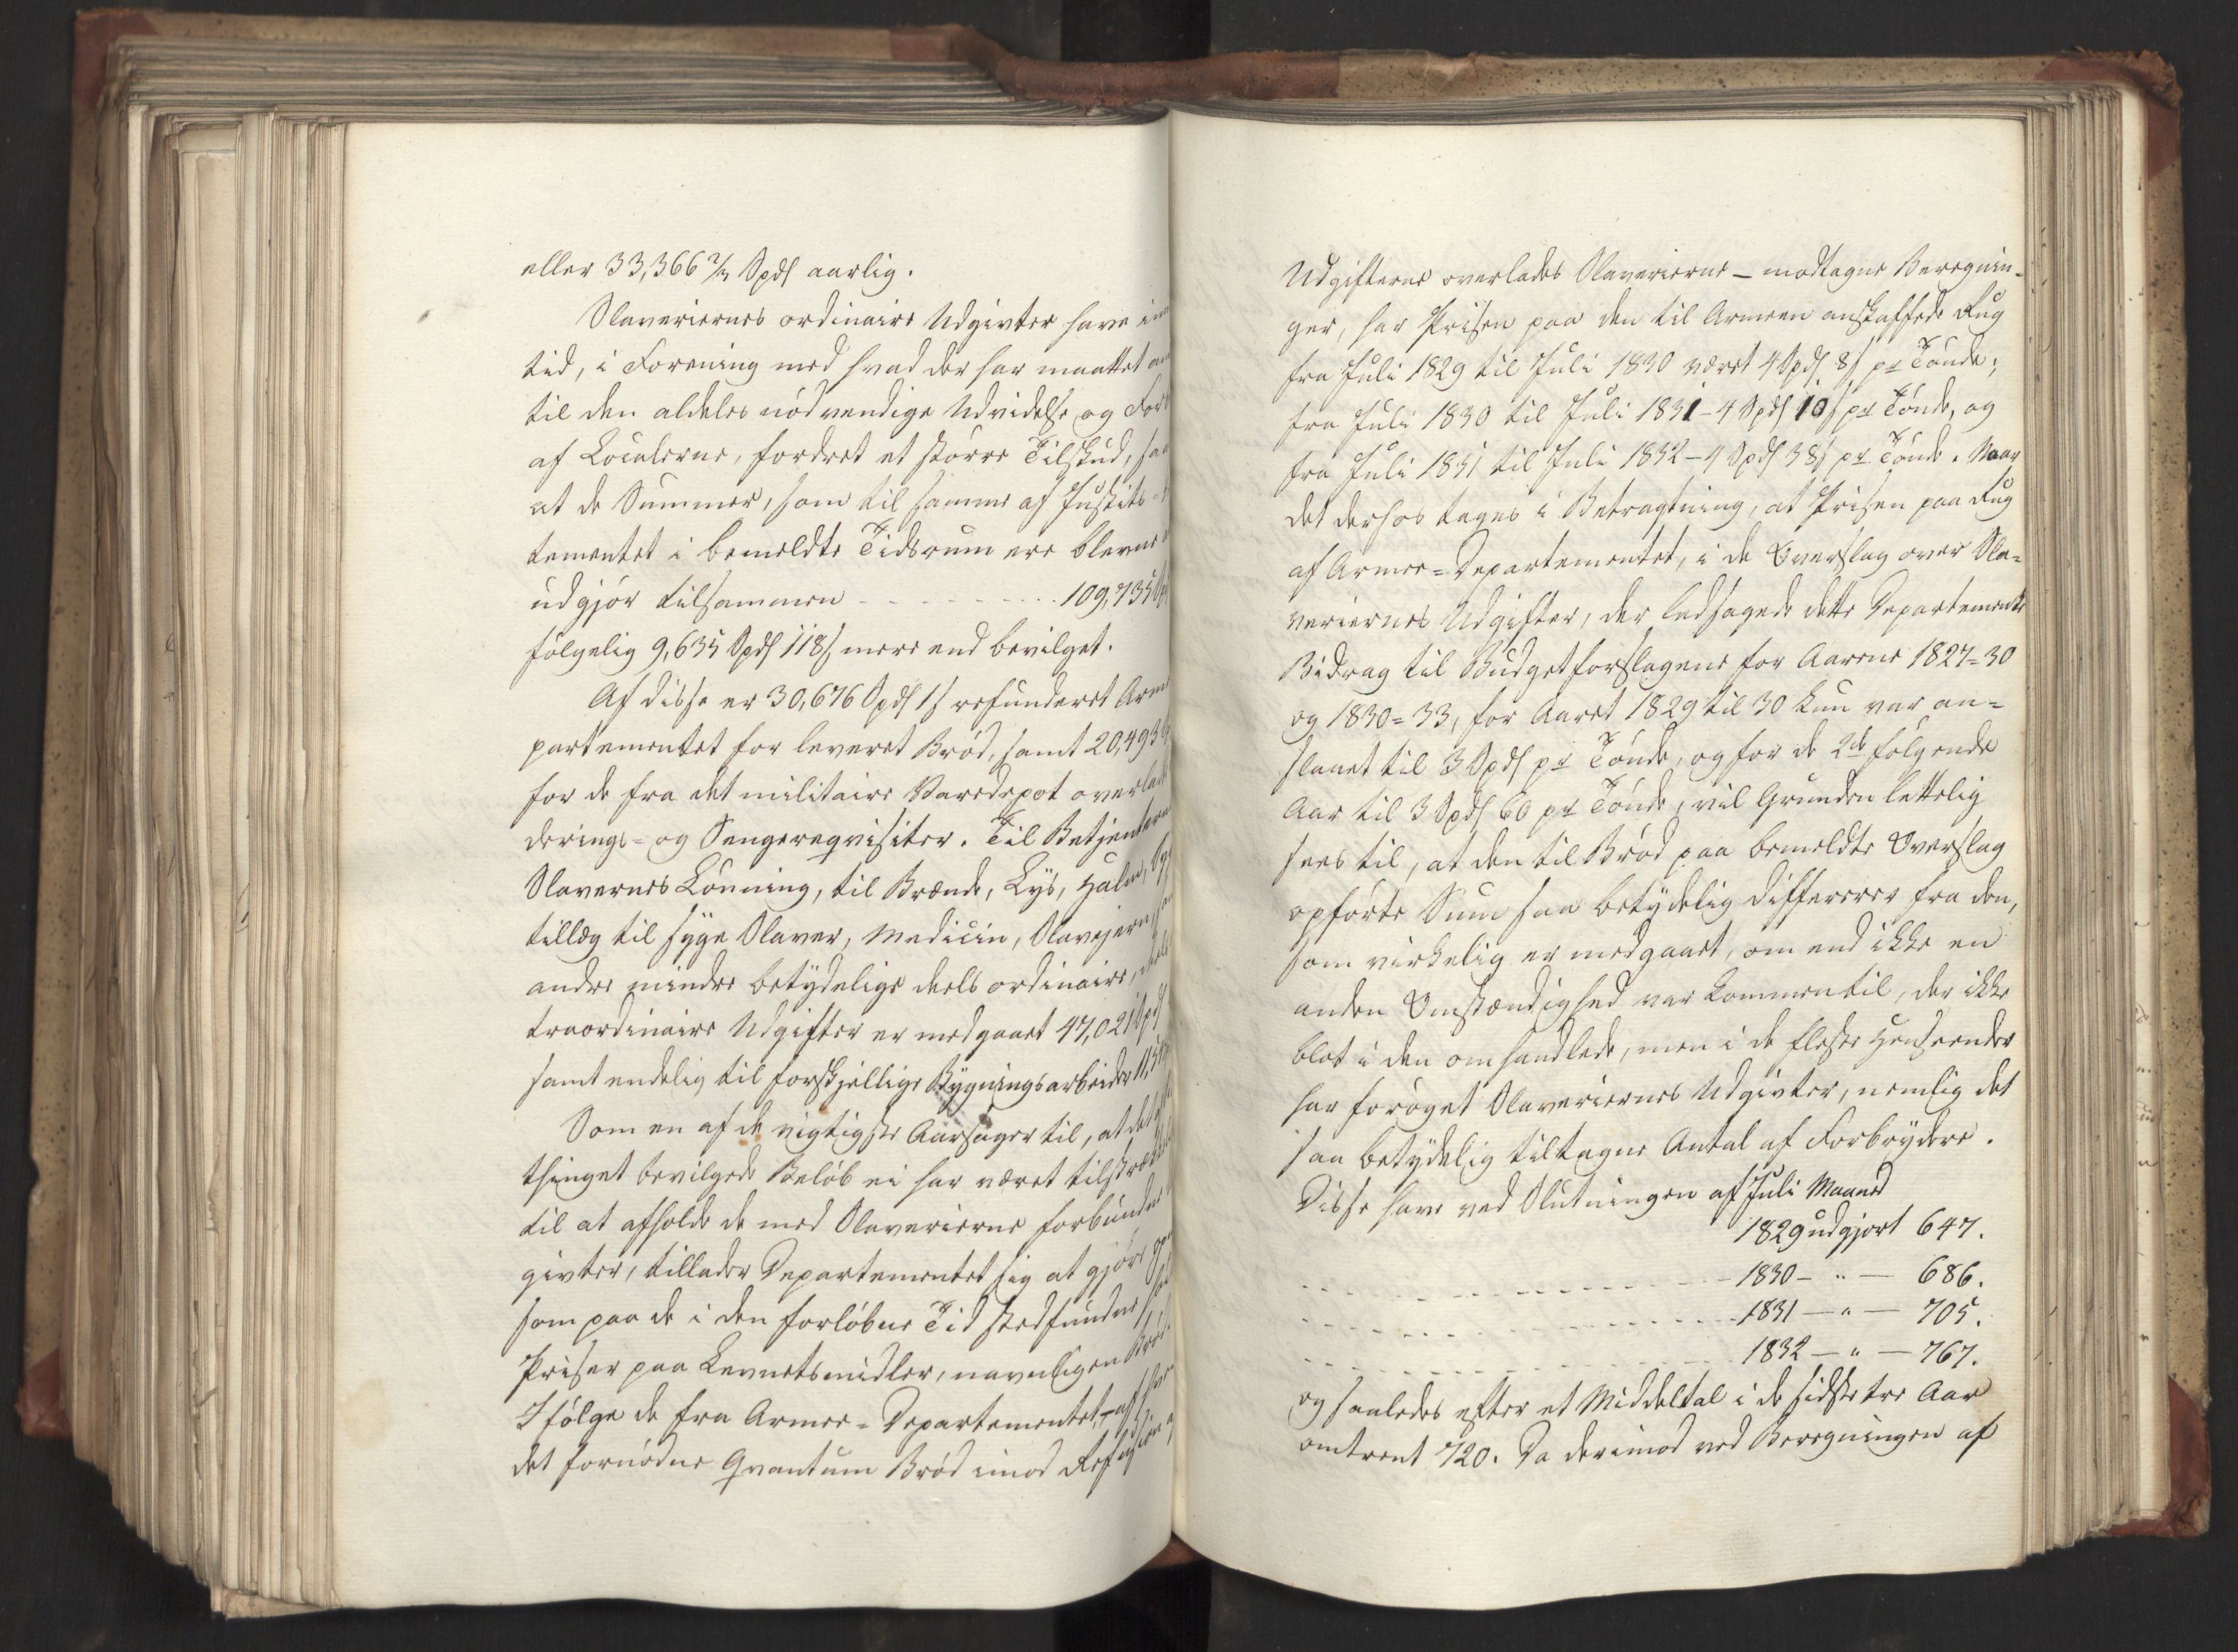 eller 33,366 2/3 Spd aarlig.
Slaveriernes ordinaire Udgivter have i
tid, i Forening med hvad der har maattet
til den aldeles nödvendige Udvidelse og
af Localerne, fordret et större Tilskud, saa
at de Summer, som til samme af Justits-
tementet i bemeldte Tidsrum ere blevne
udgjör tilsammen - - - - - - - - 109,735
fölgelig 9,635 Spd 118 s mere end bevilget.
Af disse er 30,676 Spd 1 s refunderet Arme
partementet for leveret Bröd, samt 20,493
for de fra det militaire Varedepot overlad
derings- og Sengereqvisiter. Til Betjentern
Slavernes Lönning, til Brænde, Lys, Halm,
tillæg til syge Slaver, Medicin, Slavejern,
andre mindre betydelige deels ordinaire, deels
traordinaire Udgifter er medgaaet 47,021 Spd
samt endelig til forskjellige Bygningsarbeider
Som en af de vigtigste Aarsager til, at det
thinget bevilgede Belöb ei har været tilstrække
til at afholde de med Slaverierne forbundne
givter, tillader Departementet sig at gjöre
som paa de i den forlöbne Tid stedfundne
Priser paa Levnetsmidler, navnligen Bröd.
I fölge de fra Armee-Departementet, - af
det fornödne Qvantum Bröd imod
Udgifterne overlades Slaverierne - modtagne Beregnin-
ger, har Prisen paa den til Armeen anskaffede Rug
fra Juli 1829 til Juli 1830 været 4 Spd 8 s pr Tönde;
fra Juli 1830 til Juli 1831 - 4 Spd 10 s pr Tönde, og
fra Juli 1831 til Juli 1832 - 4 Spd 38 s pr Tönde. Naar
det derhos tages i Betragtning, at Prisen paa Rug
af Armee-Departementet, i de Overslag over Sla-
veriernes Udgifter, der ledsagede dette Departements
Bidrag til Budgetforslagene for Aarene 1827-30
og 1830-33, for Aaret 1829 til 30 kun var an-
slaaet til 3 Spd pr Tönde, og for de 2de fölgende
Aar til 3 Spd 60 pr Tönde, vil Grunden lettelig
sees til, at den til Bröd paa bemeldte Overslag
opförte Sum saa betydelig differerer fra den,
som virkelig er medgaaet, om end ikke en
anden Omstændighed var kommen til, der ikke
blot i den omhandlede, men i de fleste Henseender
har foröget Slaveriernes Udgivter, nemlig det
saa betydelig tiltagne Antal af Forbrydere.
Disse have ved Slutningen af Juli Maaned
1829 udgjort 647.
- - - - - - - - 1830 - " - 686.
- - - - - - - - 1831 - " - 705.
- - - - - - - - 1832 - " - 767.
og saaledes efter et Middeltal i de sidste tre Aar
omtrent 720. Da derimod ved Beregningen af